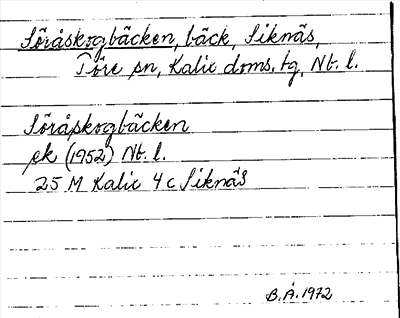 Söråskogbäcken, bäck, Siknäs,
Töre sn, Kalix doms. tg, Nb. l.
Söråskogbäcken
ek (1952) Nb. l.
25 M Kalix 4c Siknäs
B.Å. 1972